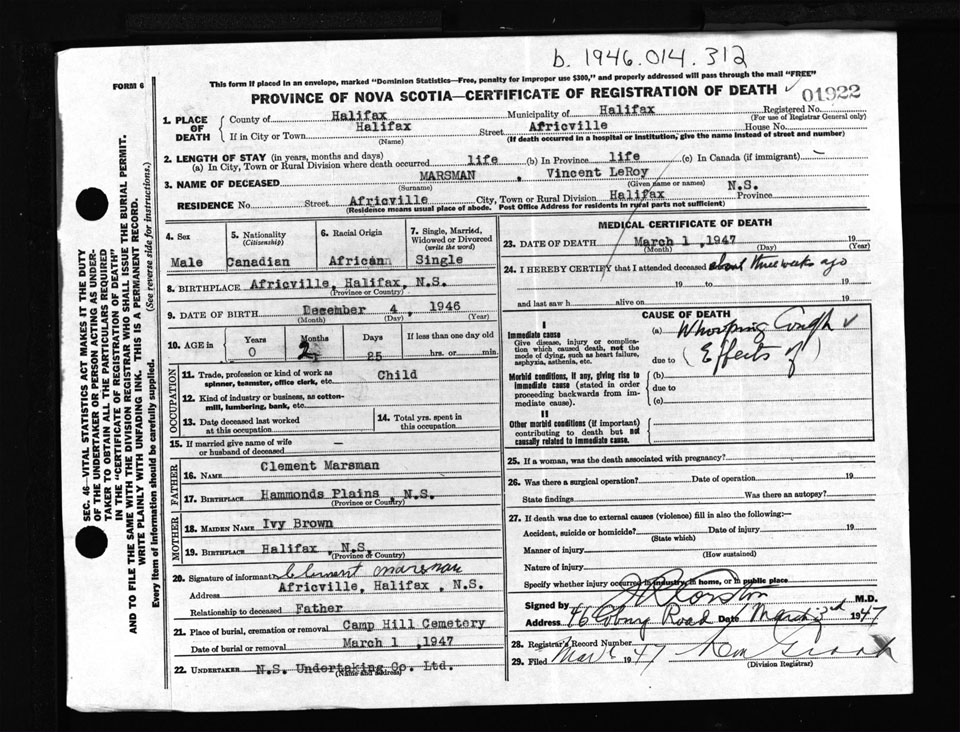 b. 1946.014.312
This form if placed in an envelope, marked "Dominion Statistics—Free, penalty for improper use $300," and properly addressed will pass through the mail "FREE"
FORM 6
PROVINCE OF NOVA SCOTIA—CERTIFICATE OF REGISTRATION OF DEATH ✓ 01922
1. PLACE OF DEATH
County of Halifax Municipality of Halifax Registered No.
(For use of Registrar General only)
If in City or Town Halifax Street Africville House No.
(Name) (If death occurred in a hospital or institution, give the name instead of street and number)
2. LENGTH OF STAY (in years, months and days)
(a) In City, Town or Rural Division where death occurred life (b) In Province life (c) In Canada (if immigrant) —
3. NAME OF DECEASED MARSMAN, Vincent LeRoy
(Surname) (Given name or names)
RESIDENCE No. Street Africville City, Town or Rural Division Halifax Province N.S.
(Residence means usual place of abode. Post Office Address for residents in rural parts not sufficient)
4. Sex Male
5. Nationality (Citizenship) Canadian
6. Racial Origin African
7. Single, Married, Widowed or Divorced (write the word) Single
8. BIRTHPLACE Africville, Halifax, N.S.
(Province or Country)
9. DATE OF BIRTH December 4, 1946
(Month) (Day) (Year)
10. AGE in Years 0 Months 2 Days 25 If less than one day old hrs. or min.
OCCUPATION
11. Trade, profession or kind of work as spinner, teamster, office clerk, etc. Child
12. Kind of industry or business, as cotton-mill, lumbering, bank, etc.
13. Date deceased last worked at this occupation
14. Total yrs. spent in this occupation
15. If married give name of wife or husband of deceased —
FATHER
16. NAME Clement Marsman
17. BIRTHPLACE Hammonds Plains, N.S.
(Province or Country)
MOTHER
18. MAIDEN NAME Ivy Brown
19. BIRTHPLACE Halifax, N.S.
(Province or Country)
20. Signature of informant Clement Marsman
Address Africville, Halifax, N.S.
Relationship to deceased Father
21. Place of burial, cremation or removal Camp Hill Cemetery
Date of burial or removal March 1, 1947
22. UNDERTAKER N.S. Undertaking Co. Ltd.
(Name and address)
MEDICAL CERTIFICATE OF DEATH
23. DATE OF DEATH March 1, 1947 19
(Month) (Day) (Year)
24. I HEREBY CERTIFY that I attended deceased about three weeks ago
19 to 19
and last saw h alive on 19
CAUSE OF DEATH
I
Immediate cause
Give disease, injury or complication which caused death, not the mode of dying, such as heart failure, asphyxia, asthenia, etc.
(a) Whooping Cough ✓
due to (Effects of)
Morbid conditions, if any, giving rise to immediate cause (stated in order proceeding backwards from immediate cause).
(b)
due to
(c)
II
Other morbid conditions (if important) contributing to death but not causally related to immediate cause.
25. If a woman, was the death associated with pregnancy?
26. Was there a surgical operation? Date of operation 19
State findings Was there an autopsy?
27. If death was due to external causes (violence) fill in also the following:—
Accident, suicide or homicide? Date of injury 19
(State which)
Manner of injury
(How sustained)
Nature of injury
Specify whether injury occurred in industry, in home, or in public place
Signed by M.D.
Address Road Date March 3rd 1947
28. Registrar's Record Number
29. Filed Mar 1947
(Division Registrar)
SEC. 46—VITAL STATISTICS ACT MAKES IT THE DUTY
OF THE UNDERTAKER OR PERSON ACTING AS UNDER-
TAKER TO OBTAIN ALL THE PARTICULARS REQUIRED
IN THE "CERTIFICATE OF REGISTRATION OF DEATH"
AND TO FILE THE SAME WITH THE DIVISION REGISTRAR WHO SHALL ISSUE THE BURIAL PERMIT.
WRITE PLAINLY WITH UNFADING INK. THIS IS A PERMANENT RECORD.
Every item of Information should be carefully supplied. (See reverse side for instructions.)